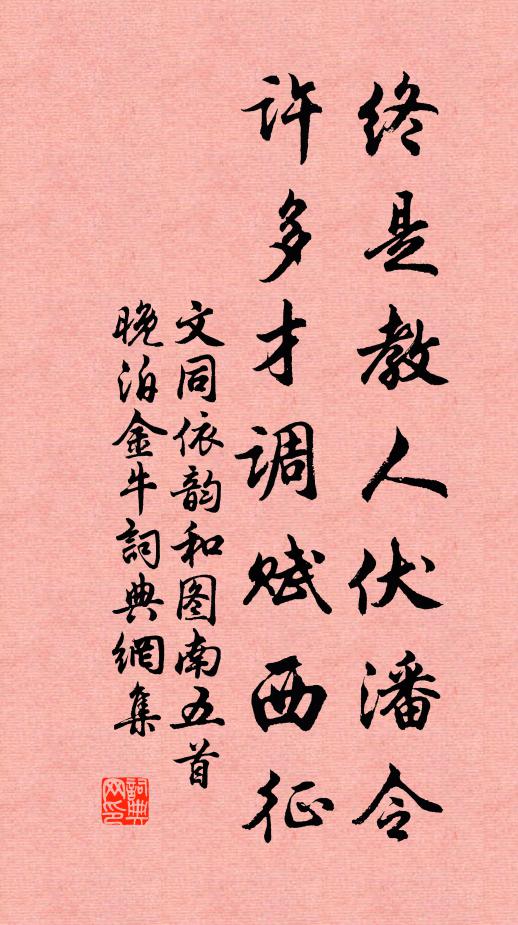 终是教人伏潘令
许多才调赋西征
文同依韵和图南五首
晚泊金牛詞典網集
詞典
网印